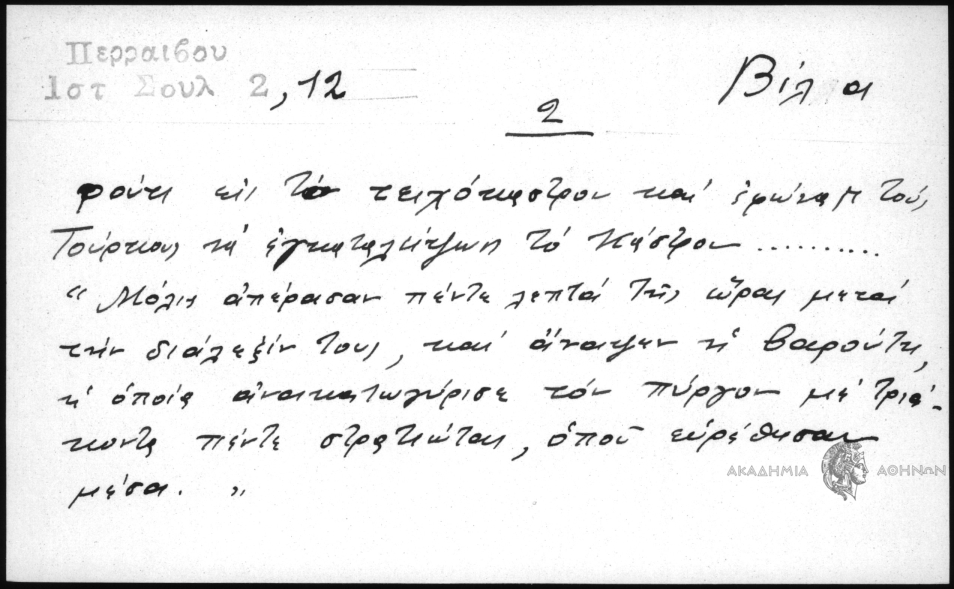 Περραιβου
1στ Σουλ 2, 12
Βίλια
2
φούκι εἰς τό τειχόκαστρον καί ἐφώναζε τούς
Τούρκους νά ἐγκαταλείψωσι τό Κάστρον ..........
"Μόλις ἀπέρασαν πέντε λεπτά τῆς ὥρας μετά
τήν διάλεξίν τους, καί ἄναψεν ἡ βαρούτη,
ἡ ὁποία ἀνακατωγύρισε τόν πύργον μέ τριά-
κοντα πέντε στρατιώτας, ὁποῦ εὑρέθησαν
μέσα. "
ΑΚΑΔΗΜΙΑ ΑΘΗΝΩΝ